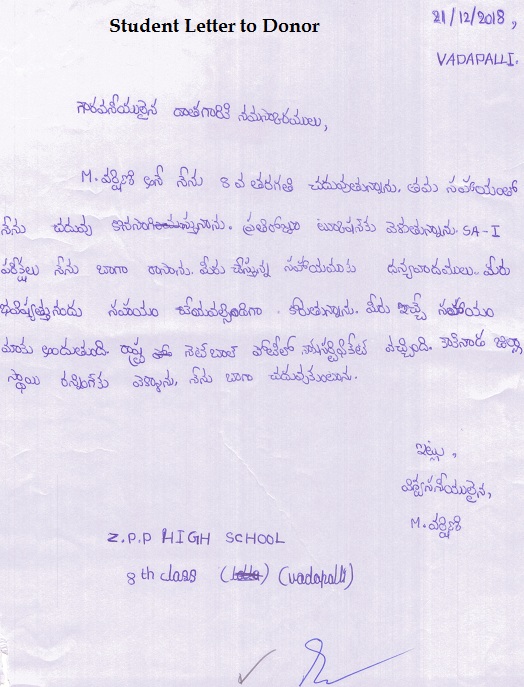 Student Letter to Donor
21/12/2018,
VADAPALLI.
గౌరవనీయులైన దాతగారికి నమస్కారములు,
M.వర్షిణి అనే నేను 8 వ తరగతి చదువుతున్నాను. తమ సహాయంతో
నేను చదువు కొనసాగిస్తున్నాను. ప్రతిరోజు ట్యూషన్‌కు వెళుతున్నాను. SA-I
పరీక్షలు నేను బాగా రాసాను. మీరు చేస్తున్న సహాయముకు ధన్యవాదములు. మీరు
భవిష్యత్తునందు సహాయం చేయవల్సిందిగా కోరుతున్నాను. మీరు ఇచ్చే సహాయం
మాకు అందుతుంది. రాష్ట్ర నెట్‌బాల్ పోటీలో నాకు సర్టిఫికేట్ వచ్చింది. కాకినాడ జిల్లా
స్థాయి రన్నింగ్‌కు వెళ్ళాను. నేను బాగా చదువుకుంటాను.
ఇట్లు,
విశ్వసనీయులైన,
M.వర్షిణి
Z.P.P HIGH SCHOOL
8th class (vadapalli)